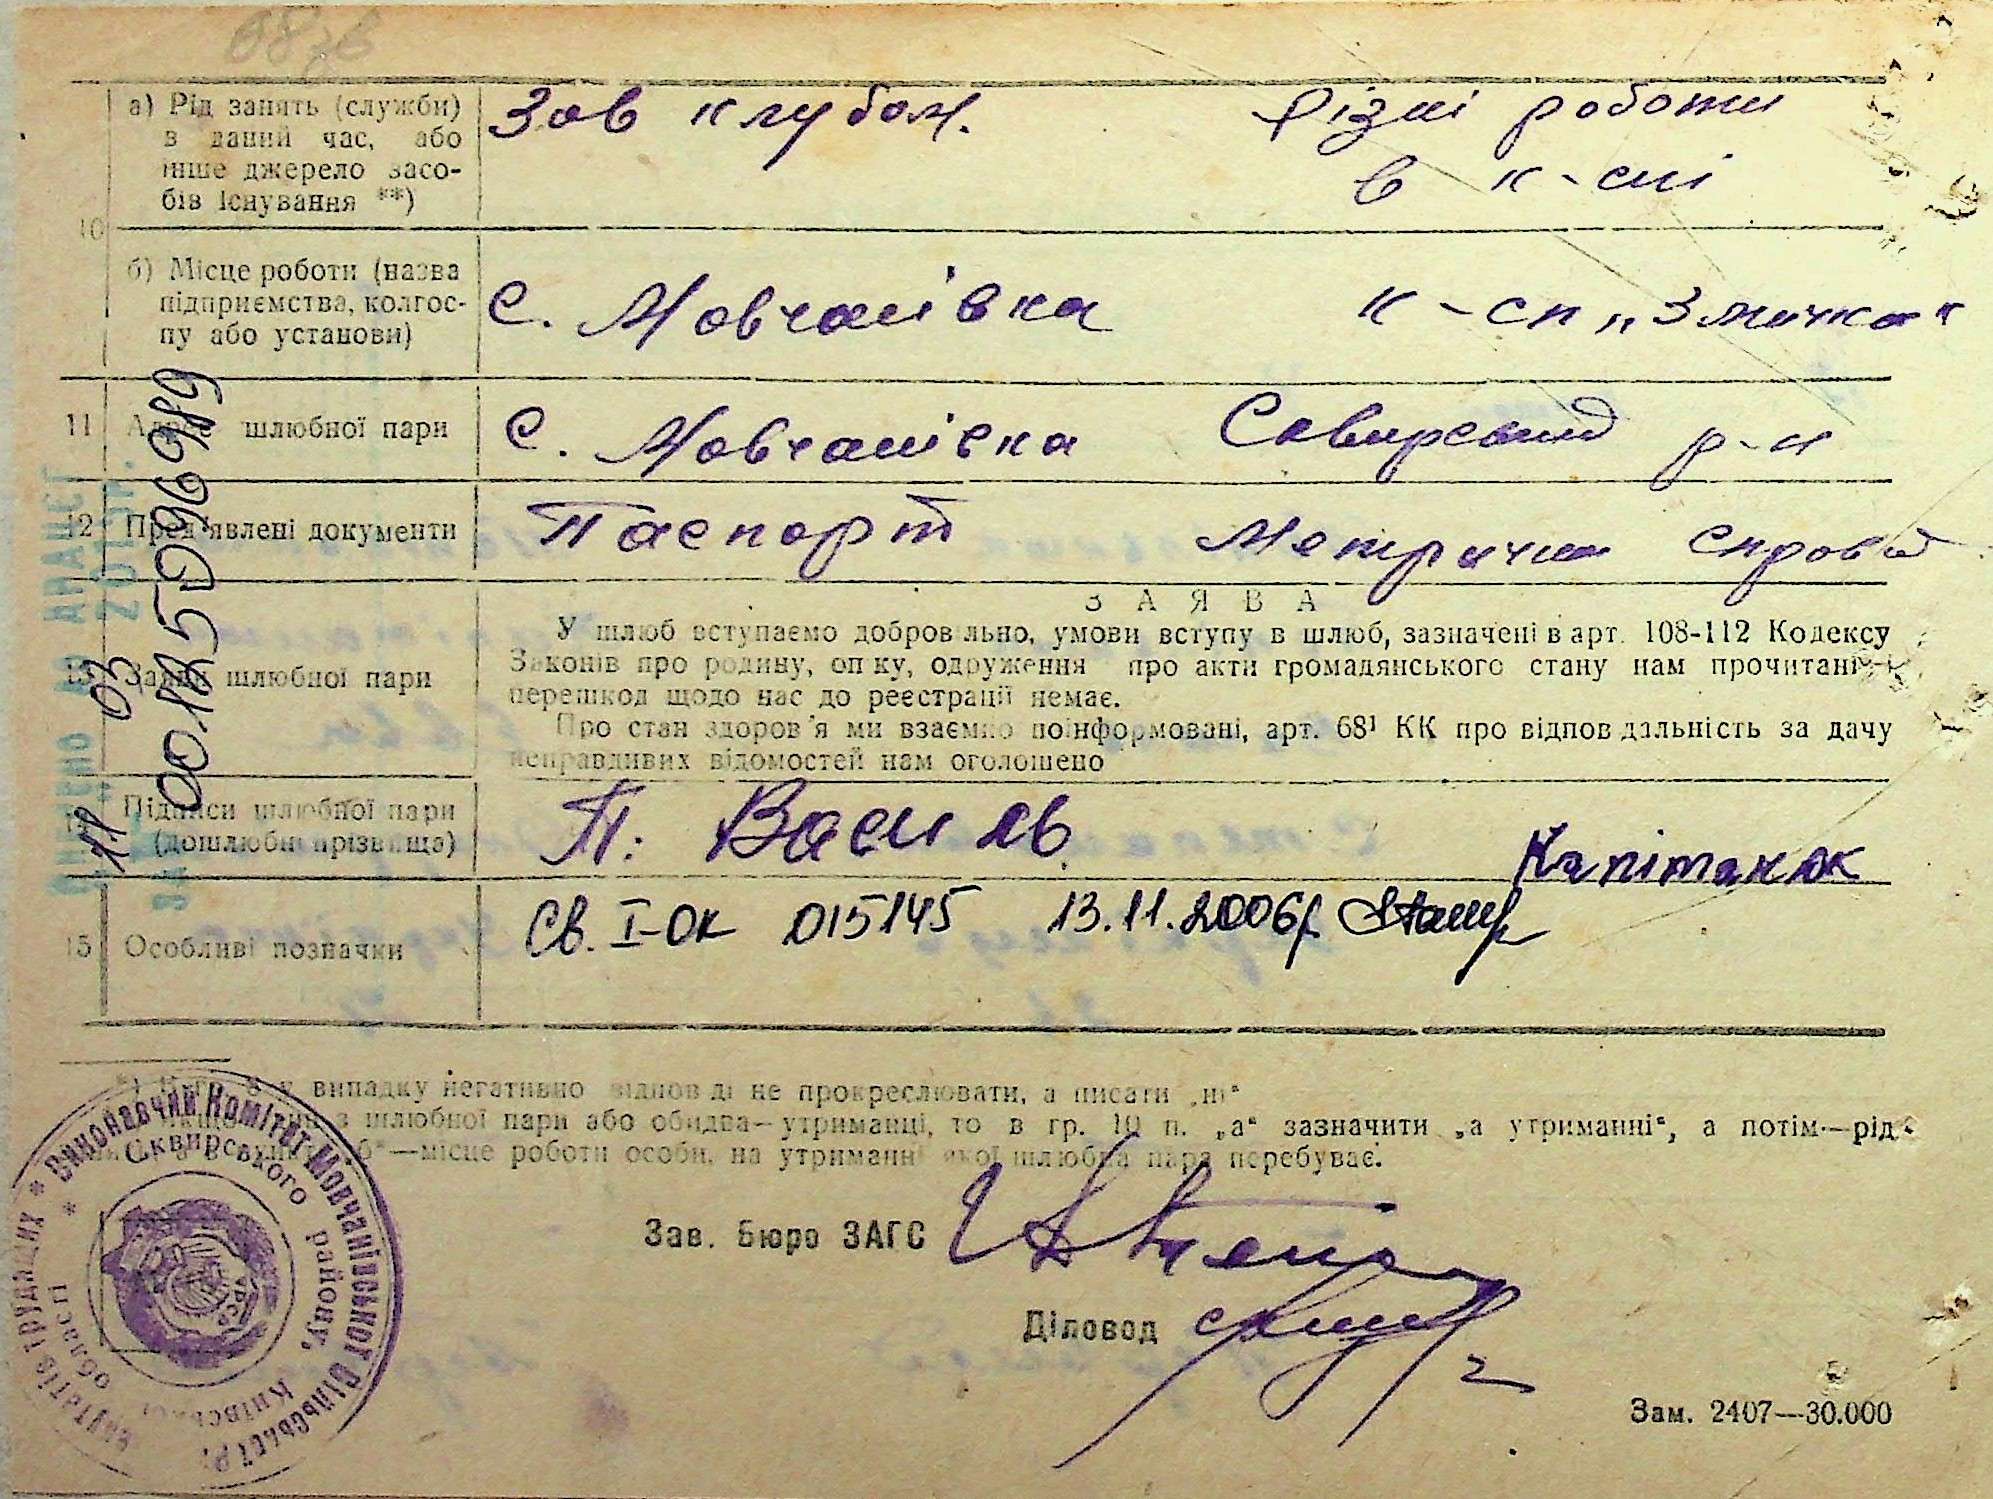 а) Рід занять (служби)
в даний час, або
інше джерело засо-
бів існування **)
Зав клубом.
Різні роботи
в к-спі
10
б) Місце роботи (назва
підприємства, колгос-
пу або установи)
с. Мовчанівка
к-сп „Змичка"
11 Адрес шлюбної пари
с. Мовчанівка Сквирський р-н
12 Пред'явлені документи
Паспорт Метричні
ЗАЯВА
13 Заява шлюбної пари
У шлюб вступаємо добров льно, умови вступу в шлюб, зазначені в арт. 108-112 Кодексу
Законів про родину, оп ку, одруження про акти громадянського стану нам прочитані і
перешкод щодо нас до реєстрації немає.
Про стан здоров'я ми взаємно поінформовані, арт. 68¹ КК про відпов дальність за дачу
неправдивих відомостей нам оголошено
14 Підписи шлюбної пари
(дошлюбні прізвища)
П. Василь
Капітанюк
15 Особливі позначки
Св. І-ОК 015145 13.11.2006р.
00125096989
11 03
*) В гр. у випадку негативно відпов ді не прокреслювати, а писати „ні"
з шлюбної пари або обидва—утриманці, то в гр. 10 п. „а" зазначити „а утриманні", а потім—рід
б"—місце роботи особи, на утриманні якої шлюбна пара перебуває.
Зав. Бюро ЗАГС
Діловод
Зам. 2407—30.000
* Виконавчий Комітет Мовчанівської Сільської Р
депутатів трудящих *
* Сквирського району,
Київської області
УРСР